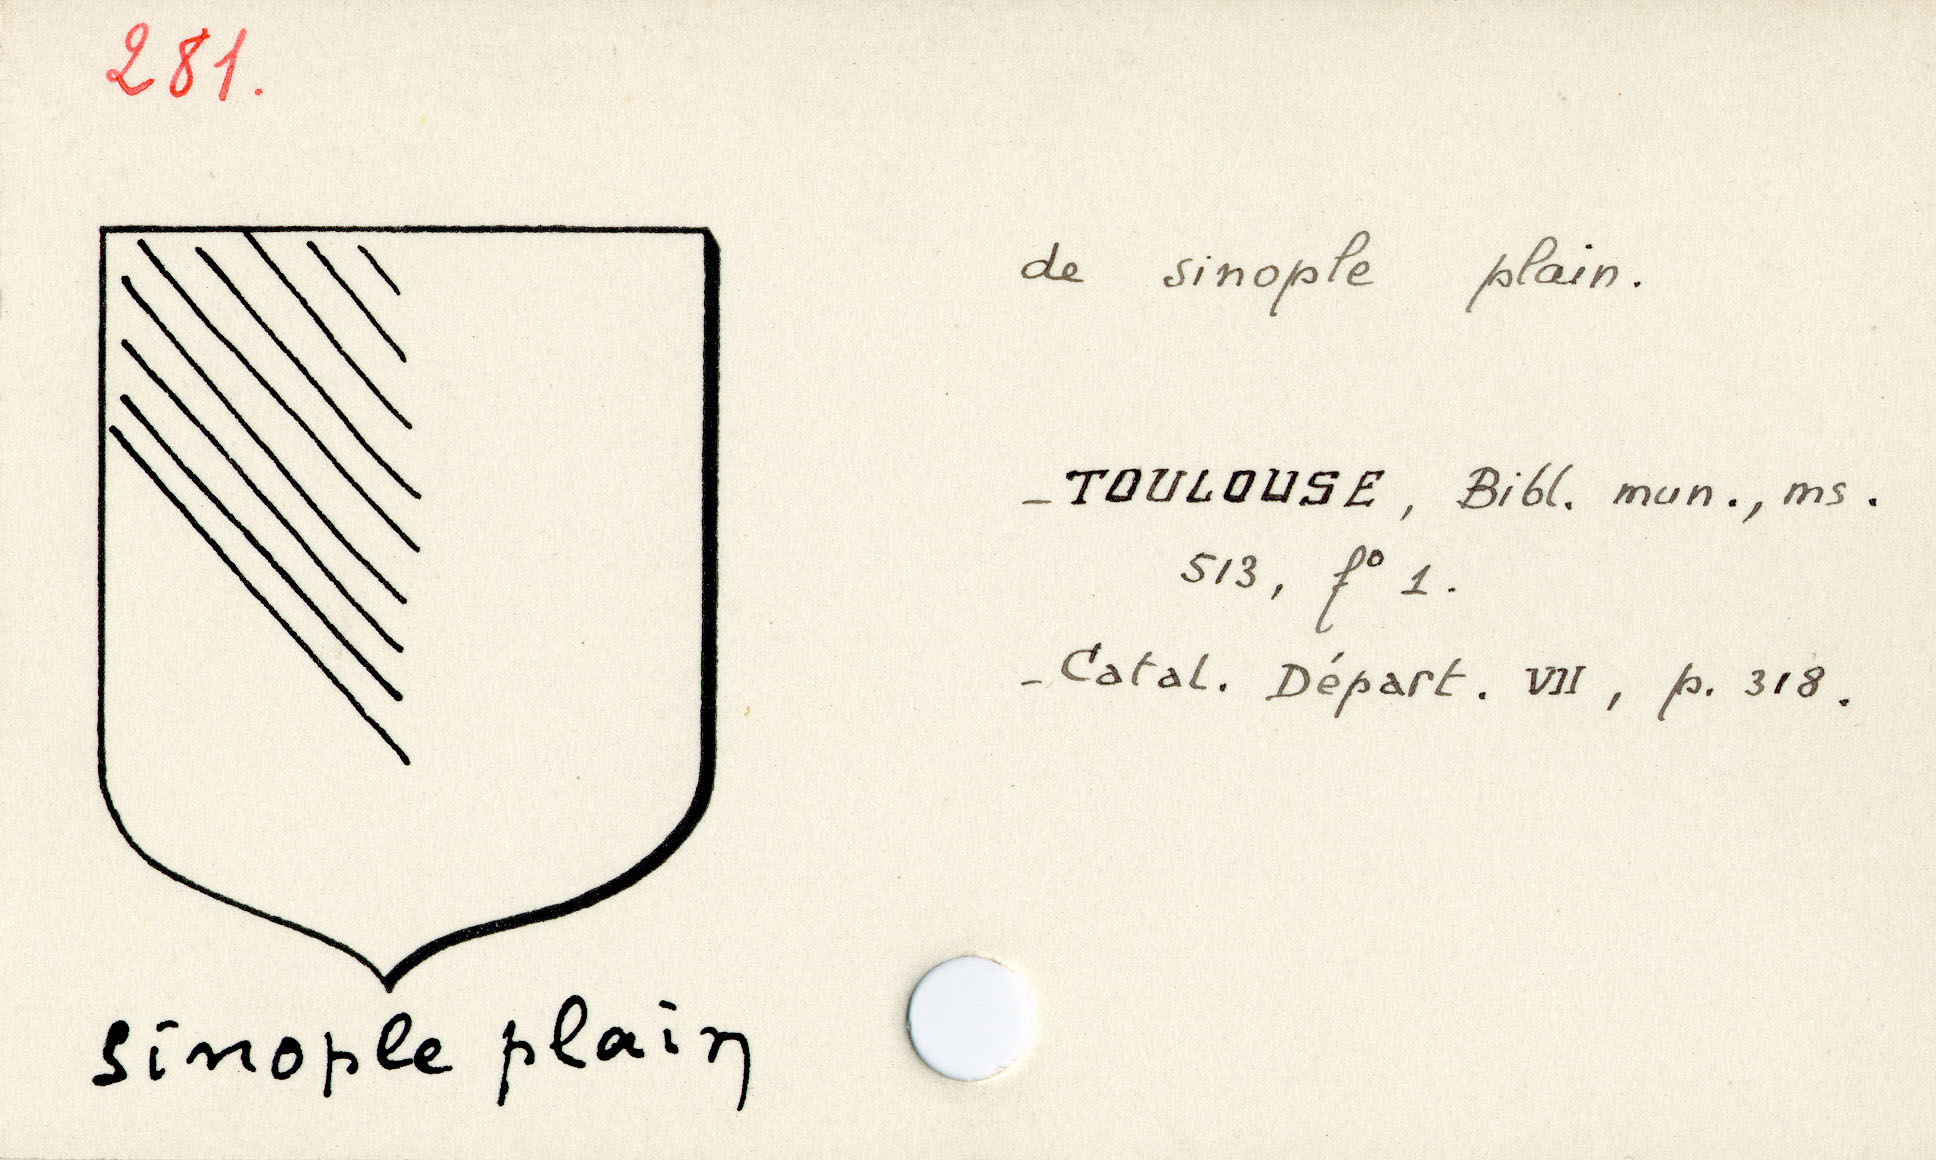 281.
de sinople plain.
- TOULOUSE, Bibl. mun., ms.
513, fº 1.
- Catal. Départ. VII, p. 318.
sinople plain